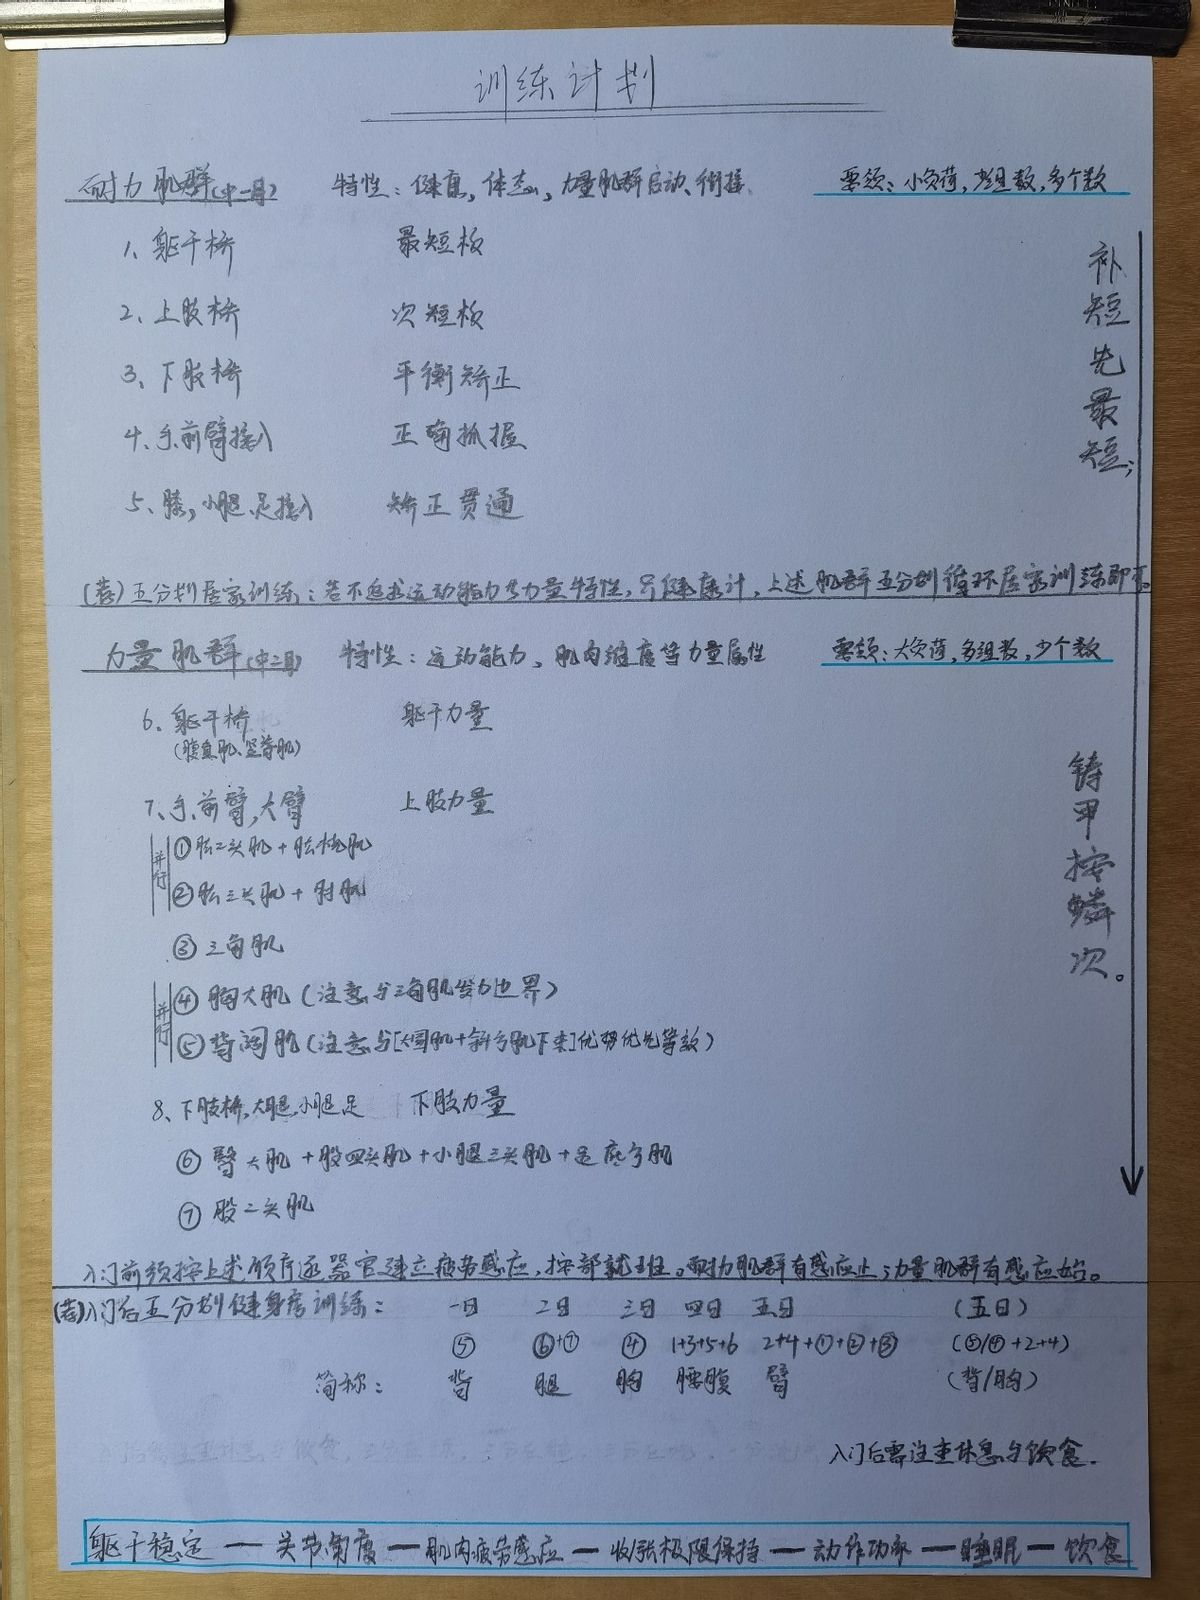 训练计划
耐力肌群(中一月) 特性：健康，体态，力量肌群启动、衔接 要领：小负荷，少组数，多个数
1、躯干桥 最短板
2、上肢桥 次短板
3、下肢桥 平衡矫正
4、手、前臂接入 正确抓握
5、膝，小腿、足接入 矫正贯通
补短先最短；
(荐)五分划居家训练：若不追求运动能力与力量特性，只健康计，上述肌群五分划循环居家训练即可。
力量肌群(中二月) 特性：运动能力、肌肉维度等力量属性 要领：大负荷，多组数，少个数
6、躯干桥 躯干力量
(腹直肌、竖脊肌)
7、手、前臂，大臂 上肢力量
并行
①肱二头肌+肱桡肌
②肱三头肌+肘肌
③三角肌
并行
④胸大肌(注意与三角肌发力边界)
⑤背阔肌(注意与[大圆肌+斜方肌下束]优势优先等效)
8、下肢桥，大腿，小腿足 下肢力量
⑥臀大肌+股四头肌+小腿三头肌+足底方肌
⑦股二头肌
铸甲按鳞次。
入门前须按上述顺序逐器官建立疲劳感应，按部就班。耐力肌群有感应止；力量肌群有感应始。
(荐)入门后五分划健身房训练： 一日 二日 三日 四日 五日 (五日)
⑤ ⑥+⑦ ④ 1+3+5+6 2+4+①+②+③ (⑤/④+2+4)
简称： 背 腿 胸 腰腹 臂 (背/胸)
入门后需注重休息与饮食.
躯干稳定—关节角度—肌肉疲劳感应—收张极限保持—动作功率—睡眠—饮食